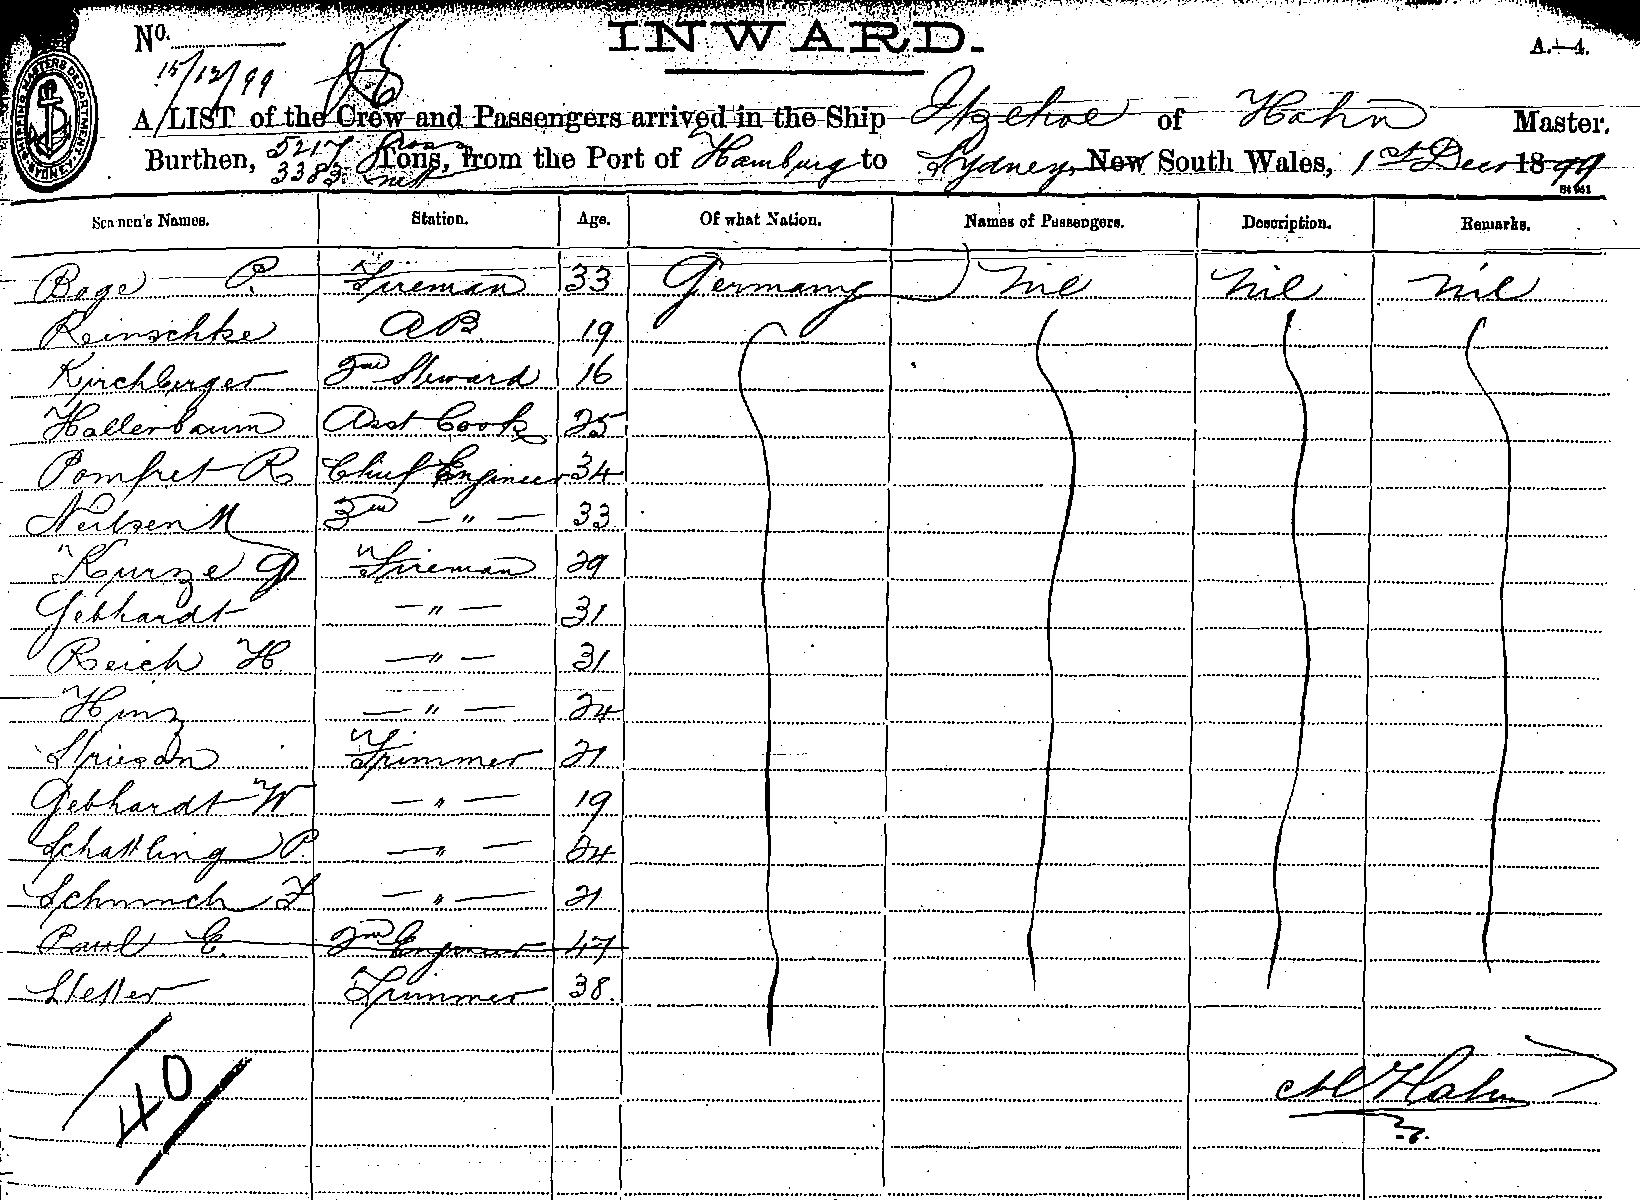 No.
INWARD.
A.—4.
15/12/99
A LIST of the Crew and Passengers arrived in the Ship Itzehoe of Hahn Master.
Burthen, 5217 Gross 3383 nett Tons, from the Port of Hamburg to Sydney, New South Wales, 1st Decr 1899
SHIPPING MASTERS DEPARTMENT SYDNEY
Seamen's Names. Station. Age. Of what Nation. Names of Passengers. Description. Remarks.
Boge P. Fireman 33 Germany nil nil nil
Reinschke AB. 19
Kirchberger 2nd Steward 16
Hallerbaum Asst Cook 25
Pomfret R Chief Engineer 34
Neilsen N 3rd — " — 33
Kurze G Fireman 29
Gebhardt — " — 31
Reich H. — " — 31
Hinz — " — 24
Striesan Trimmer 21
Gebhardt W. — " — 19
Schattling P. — " — 24
Schmuch F — " — 21
Paul E. 2nd Engineer 47
Stetter Trimmer 38.
40
Hahn